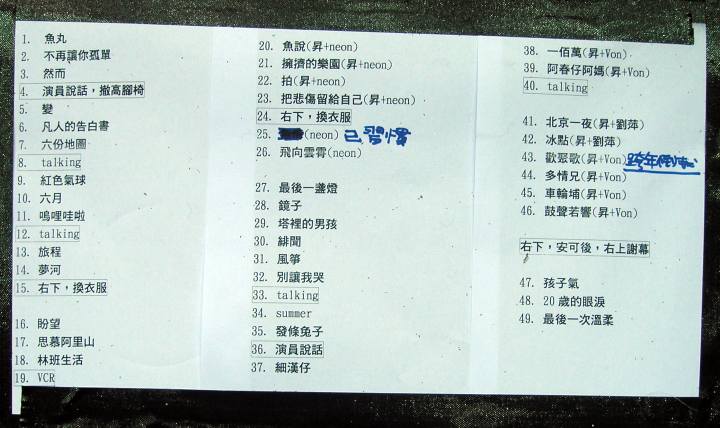 1. 魚丸
2. 不再讓你孤單
3. 然而
4. 演員說話，撤高腳椅
5. 變
6. 凡人的告白書
7. 六份地圖
8. talking
9. 紅色氣球
10. 六月
11. 嗚哩哇啦
12. talking
13. 旅程
14. 夢河
15. 右下，換衣服
16. 盼望
17. 思慕阿里山
18. 林班生活
19. VCR
20. 魚說(昇+neon)
21. 擁擠的樂園(昇+neon)
22. 拍(昇+neon)
23. 把悲傷留給自己(昇+neon)
24. 右下，換衣服
25. (neon) 已習慣
26. 飛向雲霄(neon)
27. 最後一盞燈
28. 鏡子
29. 塔裡的男孩
30. 緋聞
31. 風箏
32. 別讓我哭
33. talking
34. summer
35. 發條兔子
36. 演員說話
37. 細漢仔
38. 一佰萬(昇+Von)
39. 阿春仔阿媽(昇+Von)
40. talking
41. 北京一夜(昇+劉萍)
42. 冰點(昇+劉萍)
43. 歡聚歌(昇+Von) 跨年倒
44. 多情兄(昇+Von)
45. 車輪埔(昇+Von)
46. 鼓聲若響(昇+Von)
右下，安可後，右上謝幕
47. 孩子氣
48. 20歲的眼淚
49. 最後一次溫柔